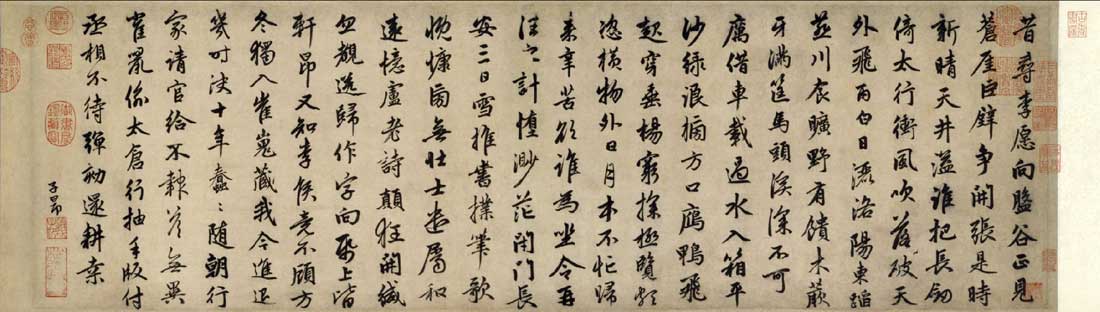 昔尋李愿向盤谷正見
蒼崖巨壁爭開張是時
新晴天井溢誰把長劒
倚太行衝風吹落破天
外飛雨白日灑洛陽東蹈
燕川食曠野有饋木蕨
牙滿筐馬頭溪深不可
厲借車載過水入箱平
沙綠浪搒方口鴈鴨飛
起穿垂楊窮探極覽頗
恣橫物外日月本不忙歸
來辛苦欲誰為坐令再
往之計墮渺茫閉門長
安三日雪推書撲筆歌
慨慷旁無壯士遣屬和
遠憶盧老詩顛狂開緘
忽覩送歸作字向紙上皆
軒昂又知李侯竟不顧方
冬獨入崔嵬藏我今進退
幾時決十年蠢〻隨朝行
家請官給不報答無異
雀鼠偷太倉行抽手版付
丞相不待彈劾還耕桑
子昂